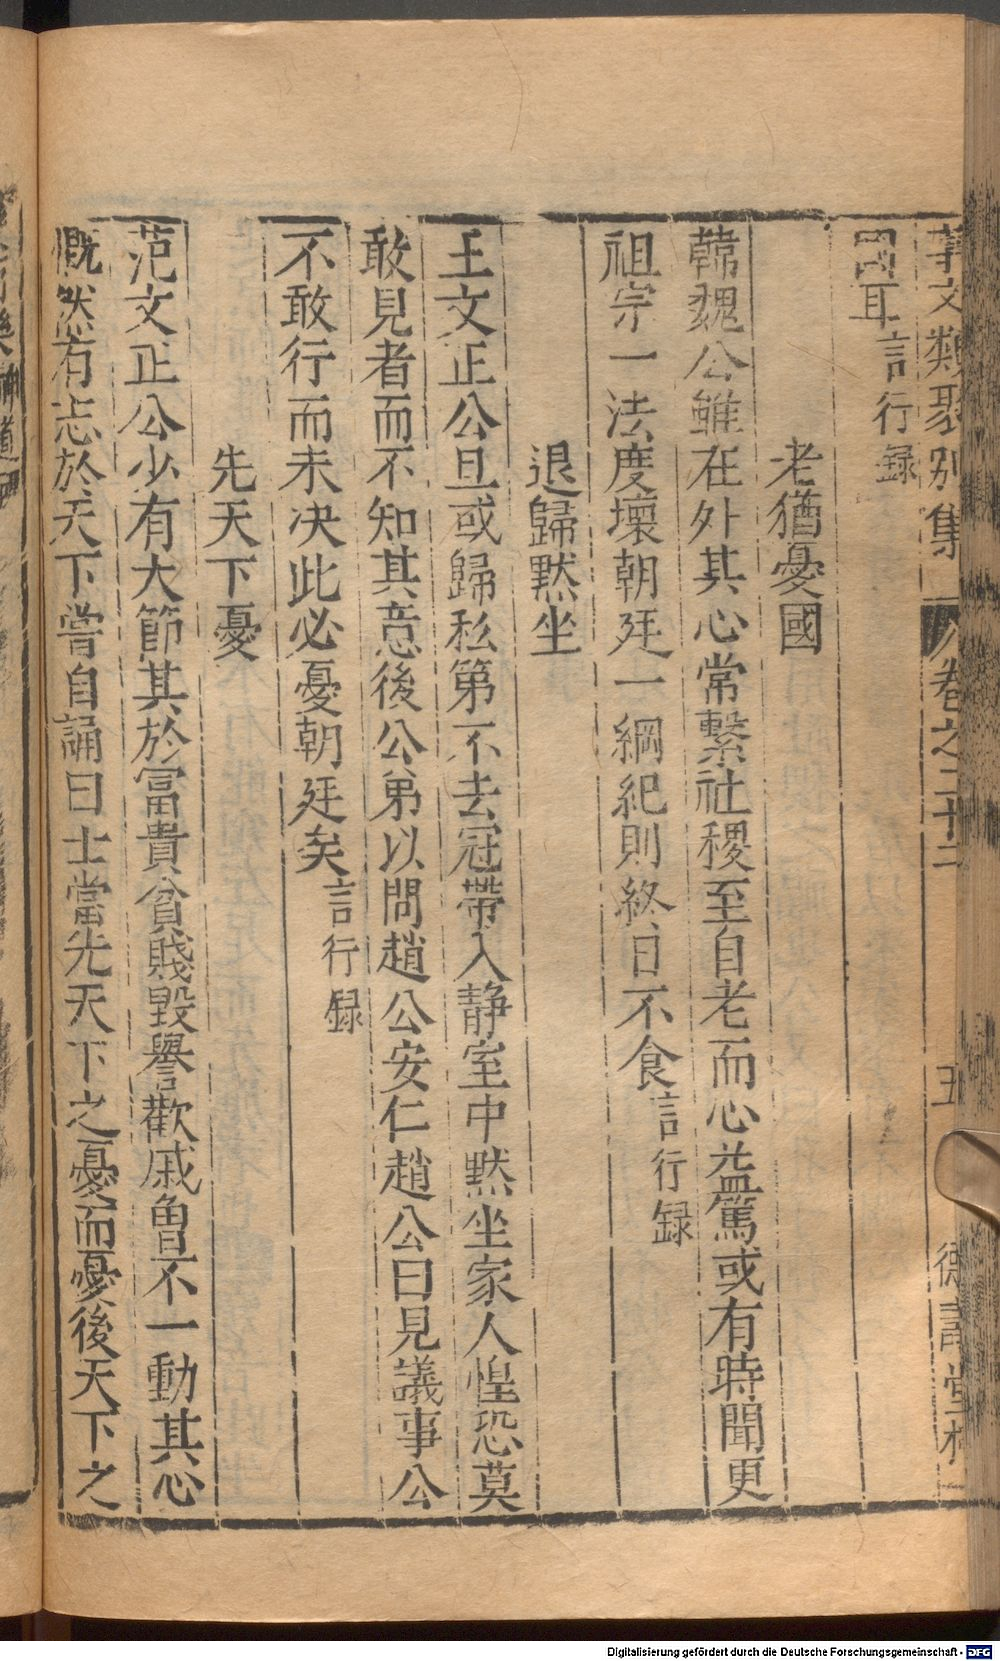 事文類聚別集 卷之二十二 五 德壽堂梓
國耳言行録
老猶憂國
韓魏公雖在外其心常繫社稷至自老而心益篤或有時聞更
祖宗一法度壞朝廷一綱紀則終日不食言行録
退歸默坐
王文正公旦或歸私第不去冠帶入静室中默坐家人惶恐莫
敢見者而不知其意後公弟以問趙公安仁趙公曰見議事公
不敢行而未决此必憂朝廷矣言行録
先天下憂
范文正公少有大節其於冨貴貧賤毀譽歡戚曽不一動其心
慨然有志於天下嘗自誦曰士當先天下之憂而憂後天下之
Digitalisierung gefördert durch die Deutsche Forschungsgemeinschaft - DFG